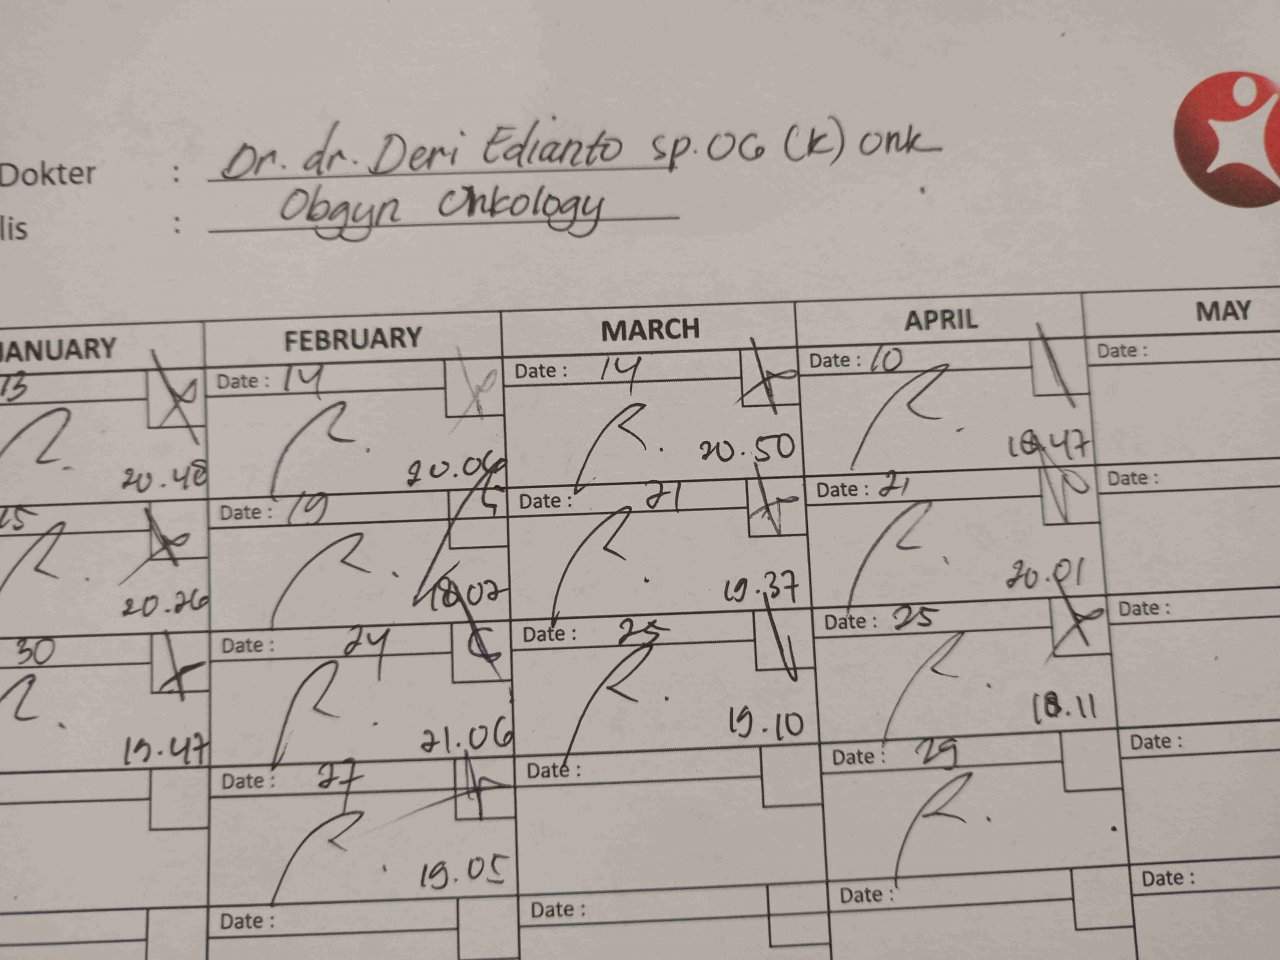 Dokter : Dr. dr. Deri Edianto sp.OG (K) onk
lis : Obgyn Onkology
JANUARY FEBRUARY MARCH APRIL MAY
13 Date : 14 Date : 14 Date : 10 Date :
R. R. R. R.
20.48 20.06 20.50 18.47
25 Date : 19 Date : 21 Date : 21 Date :
R. R. R. R.
20.26 18.02 19.37 20.01
30 Date : 24 Date : 25 Date : 25 Date :
R. R. R. R.
19.47 21.06 19.10 18.11
Date : 27 Date : Date : 29 Date :
R. R.
19.05
Date : Date : Date : Date :